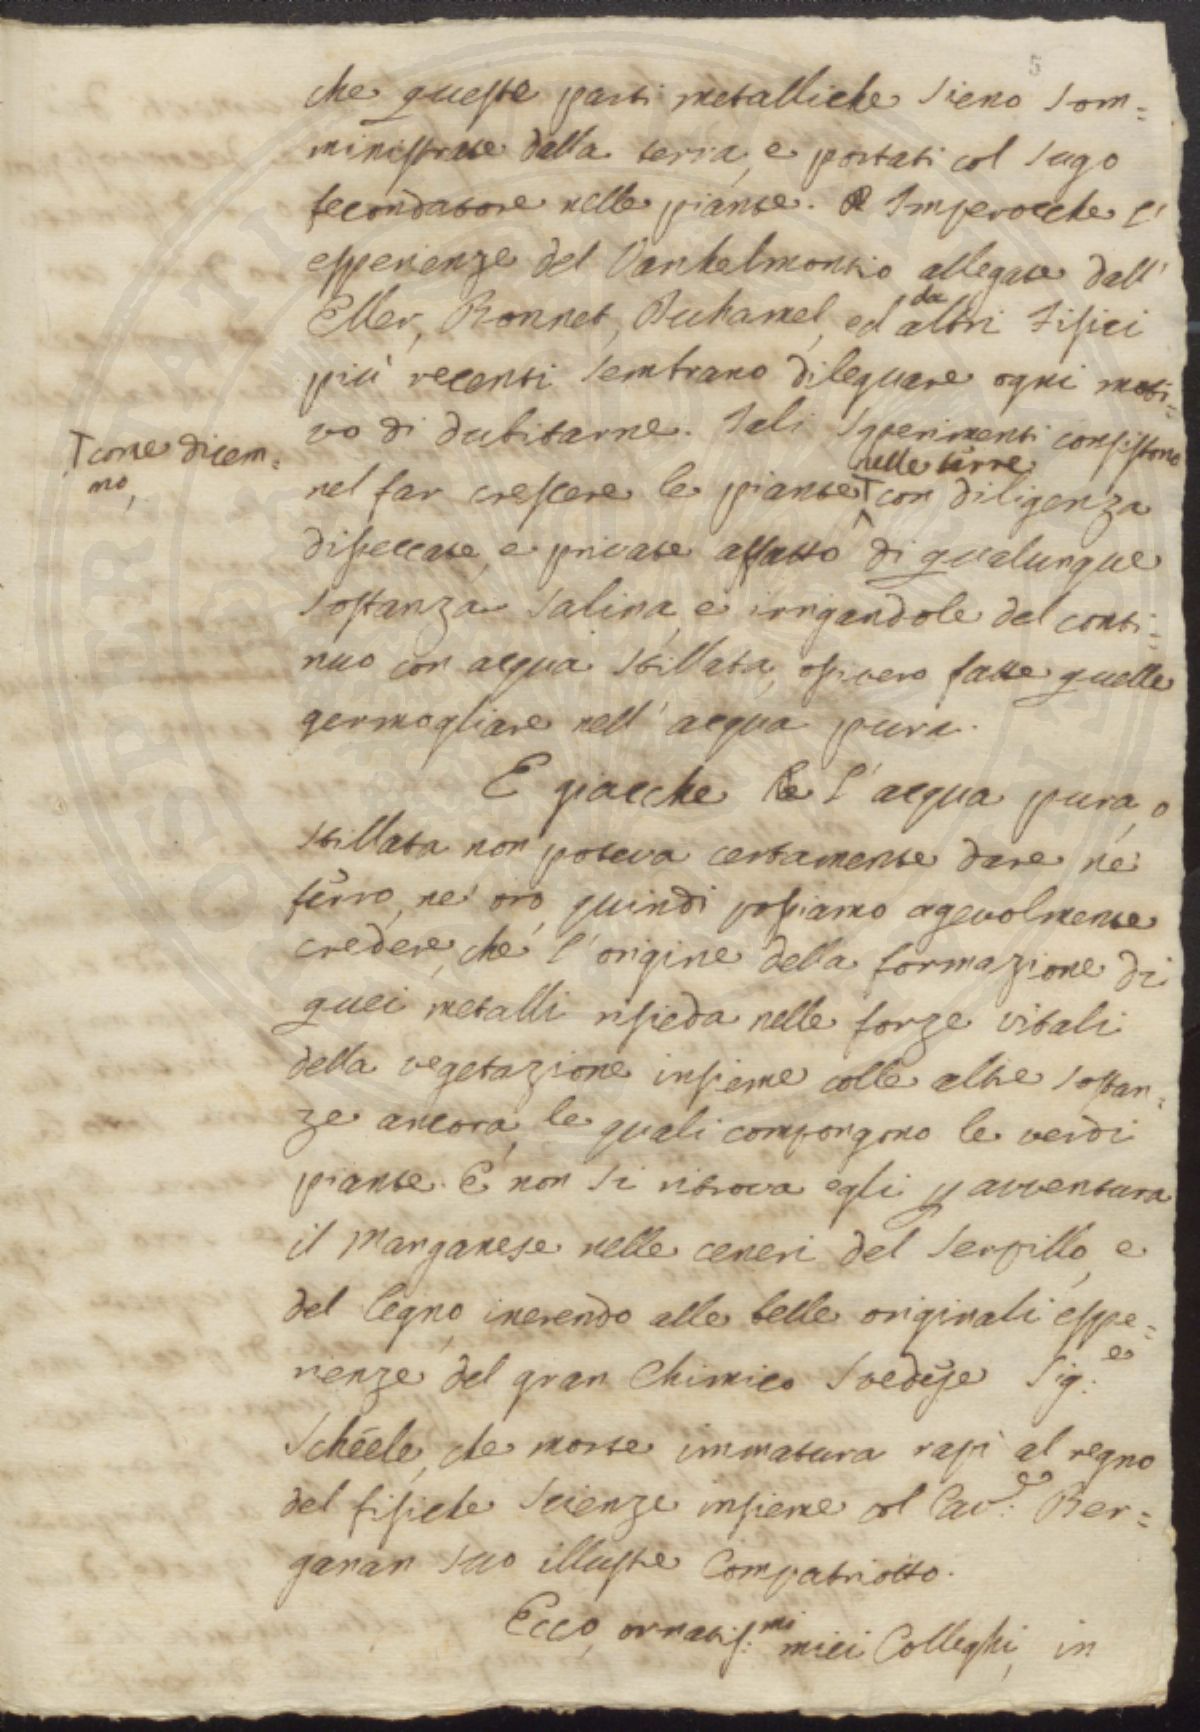 5
che queste parti metalliche sieno som=
ministrate dalla terra, e portati col sugo
fecondatore nelle piante. Imperocche l'
esperienze del Vanhelmontio allegate dall'
Eller, Bonnet, Duhamel, ed da altri Fisici
più recenti sembrano dileguare ogni moti=
vo di dubitarne. Tali sperimenti consistono
T come dicem=
mo,
nelle terre
nel far crescere le piante T con diligenza
disseccate, e private affatto di qualunque
sostanza salina, e irrigandole del conti=
nuo con acqua stillata, ossivero fatte quelle
germogliare nell' acqua pura.
E giacche l'acqua pura, o
stillata non poteva certamente dare nè
ferro, nè oro, quindi possiamo agevolmente
credere, che l'origine della formazione di
quei metalli risieda nelle forze vitali
della vegetazione insieme colle altre sostan=
ze ancora, le quali compongono le verdi
piante. E non si ritrova egli p avventura
il Manganese nelle ceneri del Serpillo, e
del legno, inerendo alle belle originali espe=
rienze del gran Chimico Svedese Sig.e
Schéele, che morte immatura rapì al regno
del fisiche scienze insieme col Cav.e Ber=
gaman suo illustre Compatriotto.
Ecco, ornatiss.mi miei Colleghi, in